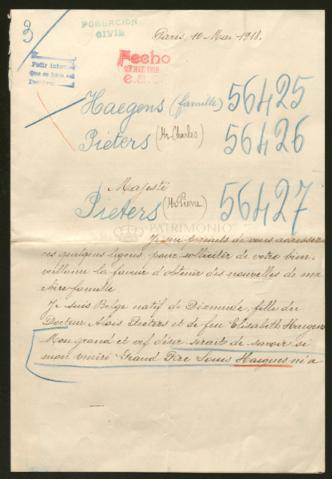 3
POBLACION
CIVIL
Paris, 10 Mai 1918.
Fecho
Pedir infor.
Haegens (famille) 56425
Pieters (Mr Charles) 56426
Majesté
Pieters (Mr Pierre) 56427
PATRIMONIO
Je me permets de vous adresser
ces quelques lignes, pour solliciter de votre bien-
veillance la faveur d'obtenir des nouvelles de ma
chère famille
Je suis Belge natif de Dixmude, fille du
Docteur Aloïs Pieters et de feu Elisabeth Haegens
Mon grand et vif désir serait de savoir si
mon vénéré Grand Père Louis Haegens n'a